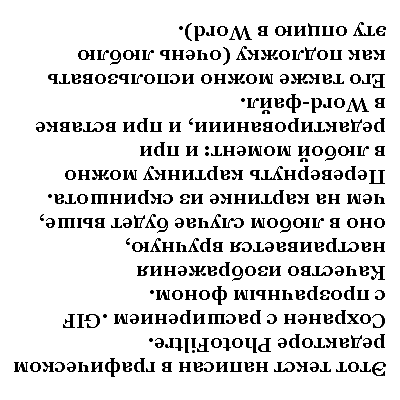 Этот текст написан в графическом
редакторе PhotoFiltre.
Сохранен с расширением .GIF
с прозрачным фоном.
Качество изображения
настраивается вручную,
оно в любом случае будет выше,
чем на картинке из скриншота.
Перевернуть картинку можно
в любой момент: и при
редактированиии, и при вставке
в Word-файл.
Его также можно использовать
как подложку (очень люблю
эту опцию в Word).